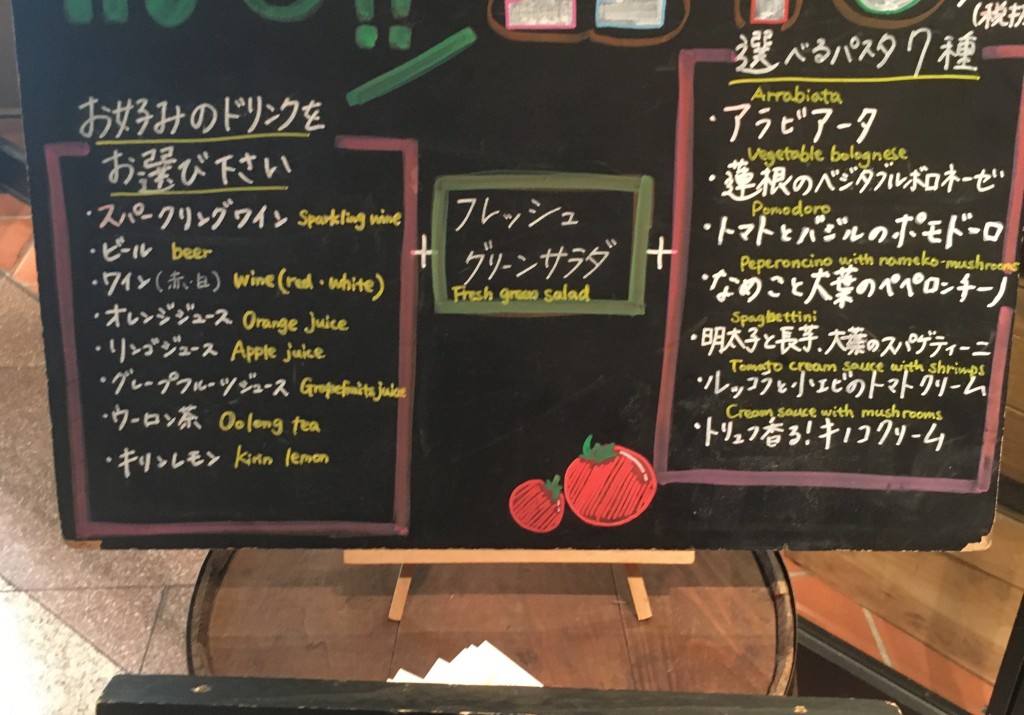 (税抜
お好みのドリンクを
お選び下さい
・スパークリングワイン Sparkling wine
・ビール beer
・ワイン(赤・白) wine(red・white)
・オレンジジュース Orange juice
・リンゴジュース Apple juice
・グレープフルーツジュース Grapefruits juice
・ウーロン茶 Oolong tea
・キリンレモン kirin lemon
+
フレッシュ
グリーンサラダ
Fresh green salad
+
選べるパスタ7種
Arrabiata
・アラビアータ
Vegetable bolognese
・蓮根のベジタブルボロネーゼ
Pomodoro
・トマトとバジルのポモドーロ
Peperoncino with nameko-mushrooms
・なめこと大葉のペペロンチーノ
Spaghettini
・明太子と長芋、大葉のスパゲティーニ
Tomato cream sauce with shrimps
・ルッコラと小エビのトマトクリーム
Cream sauce with mushrooms
・トリュフ香る!キノコクリーム